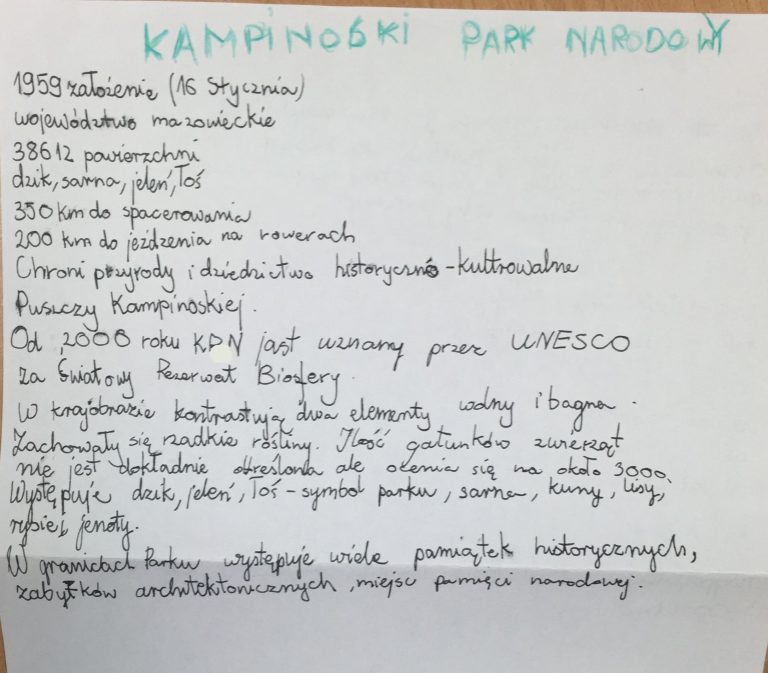 KAMPINOSKI PARK NARODOWY
1959 założenie (16 Stycznia)
województwo mazowieckie
38612 powierzchni
dzik, sarna, jeleń, Łoś
350 km do spacerowania
200 km do jeżdzenia na rowerach
Chroni przyrody i dziedictwo historyczno-kultrowalne
Puszczy Kampinoskiej.
Od 2000 roku KPN jast uznany przez UNESCO
za Światowy Rezerwat Biosfery.
W krajobrazie kontrastują dwa elementy wolny i bagna.
Zachowały się rzadkie rośliny. Ilość gatunków zwierząt
nie jest dokładnie określona ale ocenia się na około 3000.
Występuje dzik, jeleń, Łoś - symbol parku, sarna, kuny, lisy,
rybieł, jenoty.
W granicach Parku występuje wiele pamiątek historycznych,
zabytków architektonicznych, miejsc pamięci narodowej.